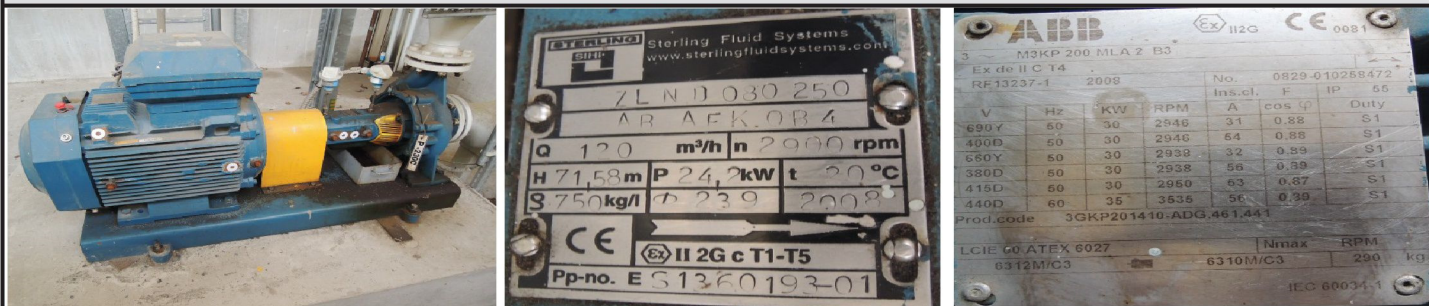 P-3200
STERLING
SIHI
Sterling Fluid Systems
www.sterlingfluidsystems.com
ZLND 080 250
AB AEK.OB4
Q 120 m³/h n 2900 rpm
H 71,58m P 24,2kW t 20 °C
ϱ 750kg/l Φ 239 2008
CE Ex II 2G c T1-T5
Pp-no. E S1360193-01
ABB Ex II2G CE 0081
3 ~ M3KP 200 MLA 2 B3
Ex de II C T4
RF13237-1 2008 No. 0829-010258472
Ins.cl. F IP 55
V Hz KW RPM A cos φ Duty
690Y 50 30 2946 31 0,88 S1
400D 50 30 2946 54 0,88 S1
660Y 50 30 2938 32 0,89 S1
380D 50 30 2938 56 0,89 S1
415D 50 30 2950 53 0,87 S1
440D 60 35 3535 56 0,89 S1
Prod.code 3GKP201410-ADG.461.441
LCIE 00 ATEX 6027 Nmax RPM
6312M/C3 6310M/C3 290 kg
IEC 60034-1